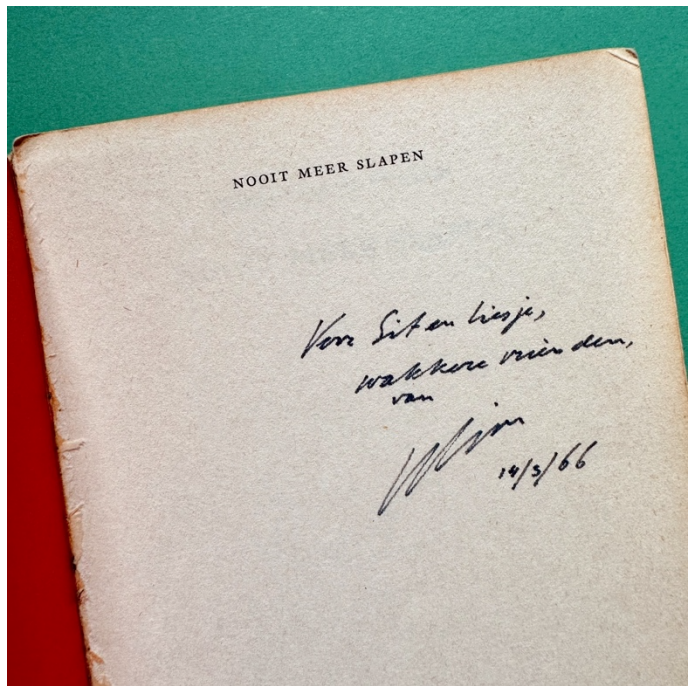 NOOIT MEER SLAPEN
Voor Sit en Liesje,
wakkere vrienden,
van
Wim
14/3/66